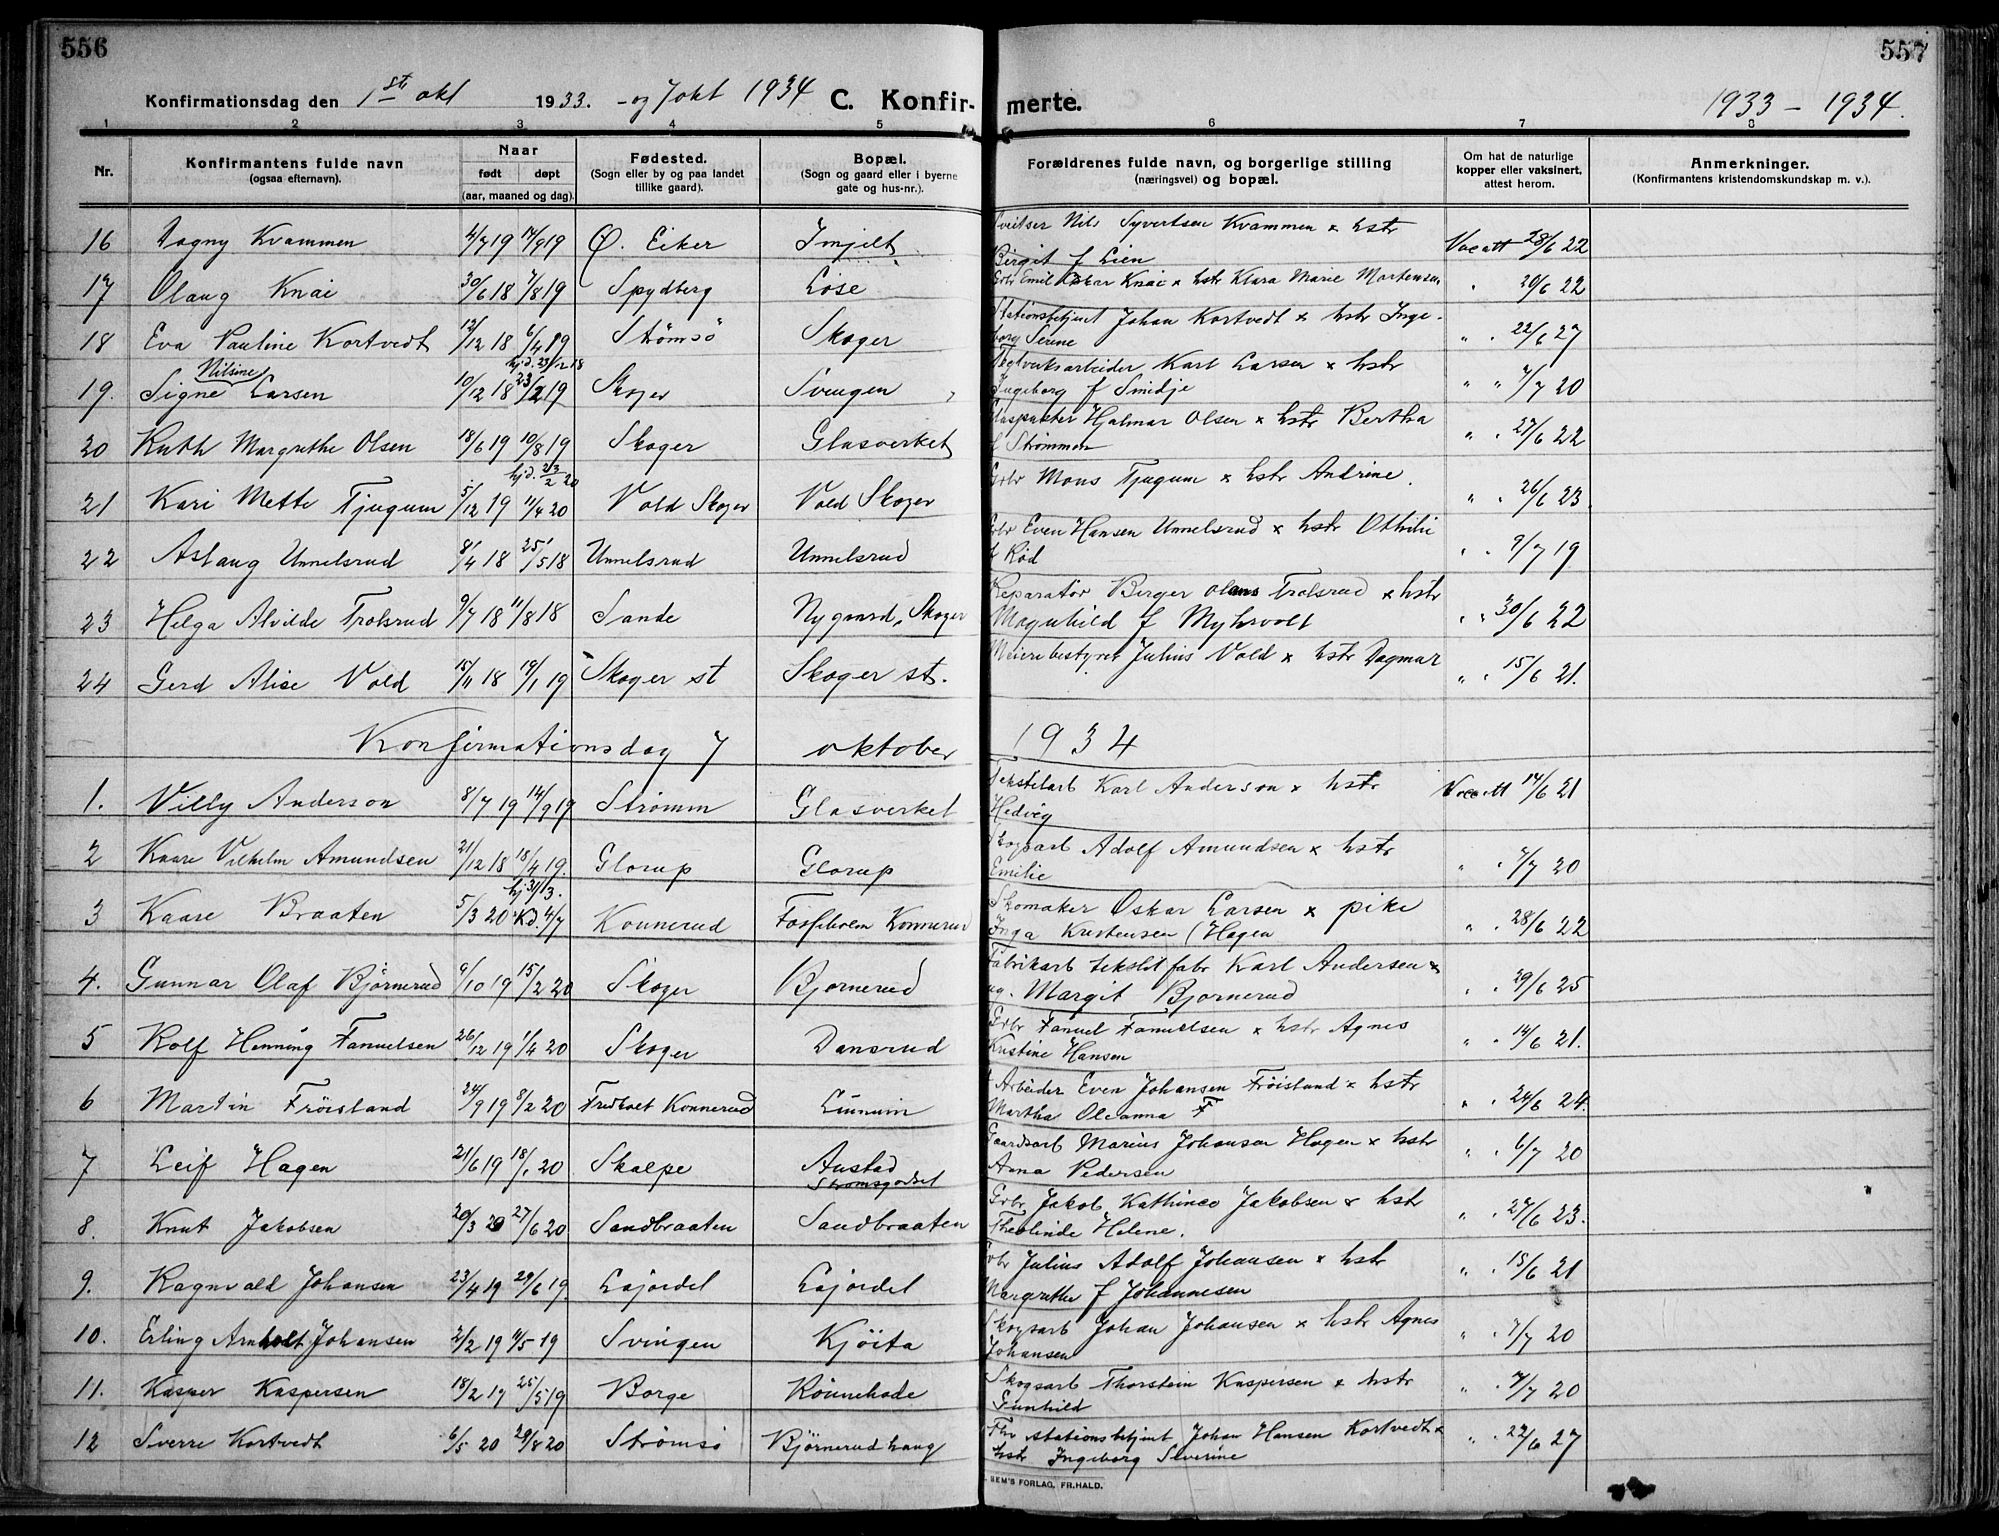 556
557
Konfirmationsdag den 1ste okt 1933. - og 7 okt 1934 C. Konfir- merte. 1933 - 1934.
1 2 3 4 5 6 7 8
Nr. Konfirmantens fulde navn (ogsaa efternavn). Naar født døpt (aar, maaned og dag). Fødested. (Sogn eller by og paa landet tillike gaard). Bopæl. (Sogn og gaard eller i byerne gate og hus-nr.). Forældrenes fulde navn, og borgerlige stilling (næringsvei) og bopæl. Om hat de naturlige kopper eller vaksinert, attest herom. Anmerkninger. (Konfirmantens kristendomskundskap m. v.).
16 Dagny Kvammen 4/7 19 14/9 19 Ø. Eiker Imjelt Sveitser Nils Syvertsen Kvammen x hstr Vac att 28/6 22
Birgit f Lien
17 Olaug Knai 30/6 18 7/8 19 Spydberg Løse Gbr Emil Oskar Knai x hstr Klara Marie Mortensen " 29/6 22
18 Eva Pauline Kortvedt 12/12 18 6/4 19 Strømsø Skoger Stationsbetjent Johan Kortvedt x hstr Inge- " " 22/6 27
borg Serine
hj.d. 23/12 18
19. Signe Nilsine Larsen 10/12 18 23/2 19 Skoger Svingen Teglverksarbeider Karl Larsen x hstr " " 7/7 20
Ingeborg f Smidje
20 Ruth Margrethe Olsen 18/6 19 10/8 19 Skoger Glasverket Glaspuster Hjalmar Olsen x hstr Bertha " " 27/6 22
f Strømmen
hj.d. 23/2 20
21 Kari Mette Tjugum 5/12 19 11/4 20 Vold Skoger Vold Skoger Gbr Mons Tjugum x hstr Andrine. " " 26/6 23
22 Aslaug Unnelsrud 8/4 18 25/5 18 Unnelsrud Unnelsrud Gbr Even Hansen Unnelsrud x hstr Othilie " " 9/7 19
f Rød
23 Helga Alvilde Trolsrud 9/7 18 11/8 18 Sande Nygaard, Skoger Reparatør Birger Olaus Trolsrud x hstr " " 30/6 22
Magnhild f Myhrvolt
24 Gerd Alise Vold 15/11 18 19/1 19 Skoger st Skoger st. Meieribestyrer Julius Vold x hstr Dagmar " " 15/6 21.
Konfirmationsdag 7 oktober 1934
1. Villy Anderson 8/7 19 14/9 19 Strømm Glasverket Tekstilarb Karl Anderson x hstr Vac att 14/6 21
Hedvig
2 Kaare Vilhelm Amundsen 21/12 18 18/4 19. Glorup Glorup Skogsarb Adolf Amundsen x hstr " 7/7 20
Emilie
hj 31/3.
3 Kaare Braaten 5/3 20 Kd. 4/7 Konnerud Fossholm Konnerud Skomaker Oskar Larsen x pike " " 28/6 22
Inga Kristensen (Hagen
4. Gunnar Olaf Bjørnerud 9/10 19 15/2 20 Skoger Bjørnerud Fabrikarb tekstilfabr Karl Andersen x " " 29/6 25
ug. Margit Bjørnerud
5 Rolf Henning Fanuelsen 26/12 19 1/4 20 Skoger Dansrud Gbr Fanuel Fanuelsen x hstr Agnes " " 14/6 21.
Kristine Hansen
6 Martin Frøisland 24/9 19 8/2 20 Fredholt Konnerud Linnum Arbeider Even Johansen Frøisland x hstr " " 24/6 24.
Martha Oleanna F
7 Leif Hagen 21/6 19 18/1 20 Skalpe Austad Strømsgodset Gaardsarb Marius Johansen Hagen x hstr " " 6/7 20
Anna Pedersen
8. Knut Jakobsen 20/3 20 27/6 20 Sandbraaten Sandbraaten Gbr Jakob Kathinco Jakobsen x hstr " " 27/6 23.
Theolinde Helene.
9. Ragnvald Johansen 23/4 19 29/6 19. Lajordet Lajordet Gbr Julius Adolf Johansen x hstr " " 15/6 21
Margrethe f Johannesen
10. Erling Arnholt Johansen 2/2 19 11/5 19 Svingen Kjøita Skogsarb Johan Johansen x hstr Agnes " " 7/7 20
Johansen
11. Kasper Kaspersen 18/2 19 25/5 19 Borge Rønnehode Skogsarb Thorstein Kaspersen x hstr " " 7/7 20
Gunhild
12 Sverre Kortvedt 6/5 20 29/8 20 Strømsø Bjørnerudhaug Fhv stationsbetjent Johan Hansen Kortvedt x " " 22/6 27
hstr Ingeborg Severine
SEM'S FORLAG, FR. HALD.